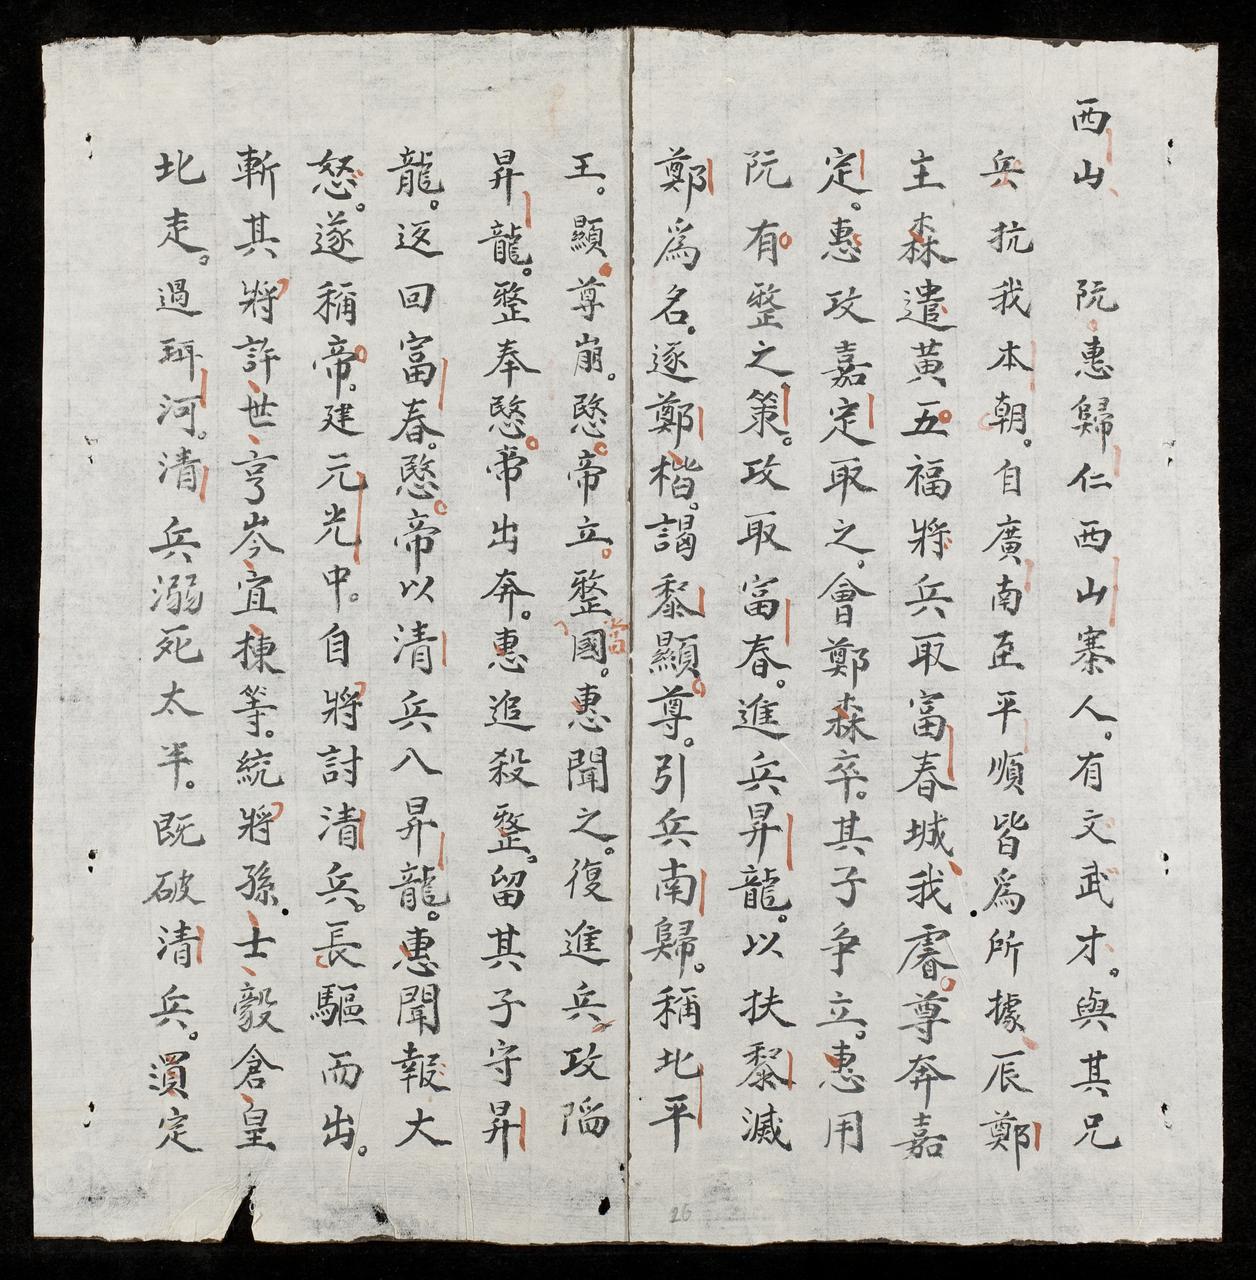 西山　阮惠歸仁西山寨人。有文武才。與其兄
兵抗我本朝。自廣南至平順皆爲所據辰鄭
主森遣黃五福將兵取富春城我睿尊奔嘉
定。惠攻嘉定取之。會鄭森卒。其子争立。惠用
阮有整之策。攻取富春。進兵昇龍。以扶黎滅
鄭爲名。遂鄭楷。謁黎顯尊。引兵南歸。稱北平
王。顯尊崩。愍帝立。整當國。惠聞之。復進兵攻陷
昇龍。整奉愍帝出奔。惠追殺整。留其子守昇
龍。返回富春。愍帝以清兵八昇龍。惠聞報大
怒。遂稱帝。建元光中。自將討清兵。長驅而出。
斬其將許世亨岑宜棟等。統將孫士毅倉皇
北走。過珥河。清兵溺死太半。既破清兵。還定
26